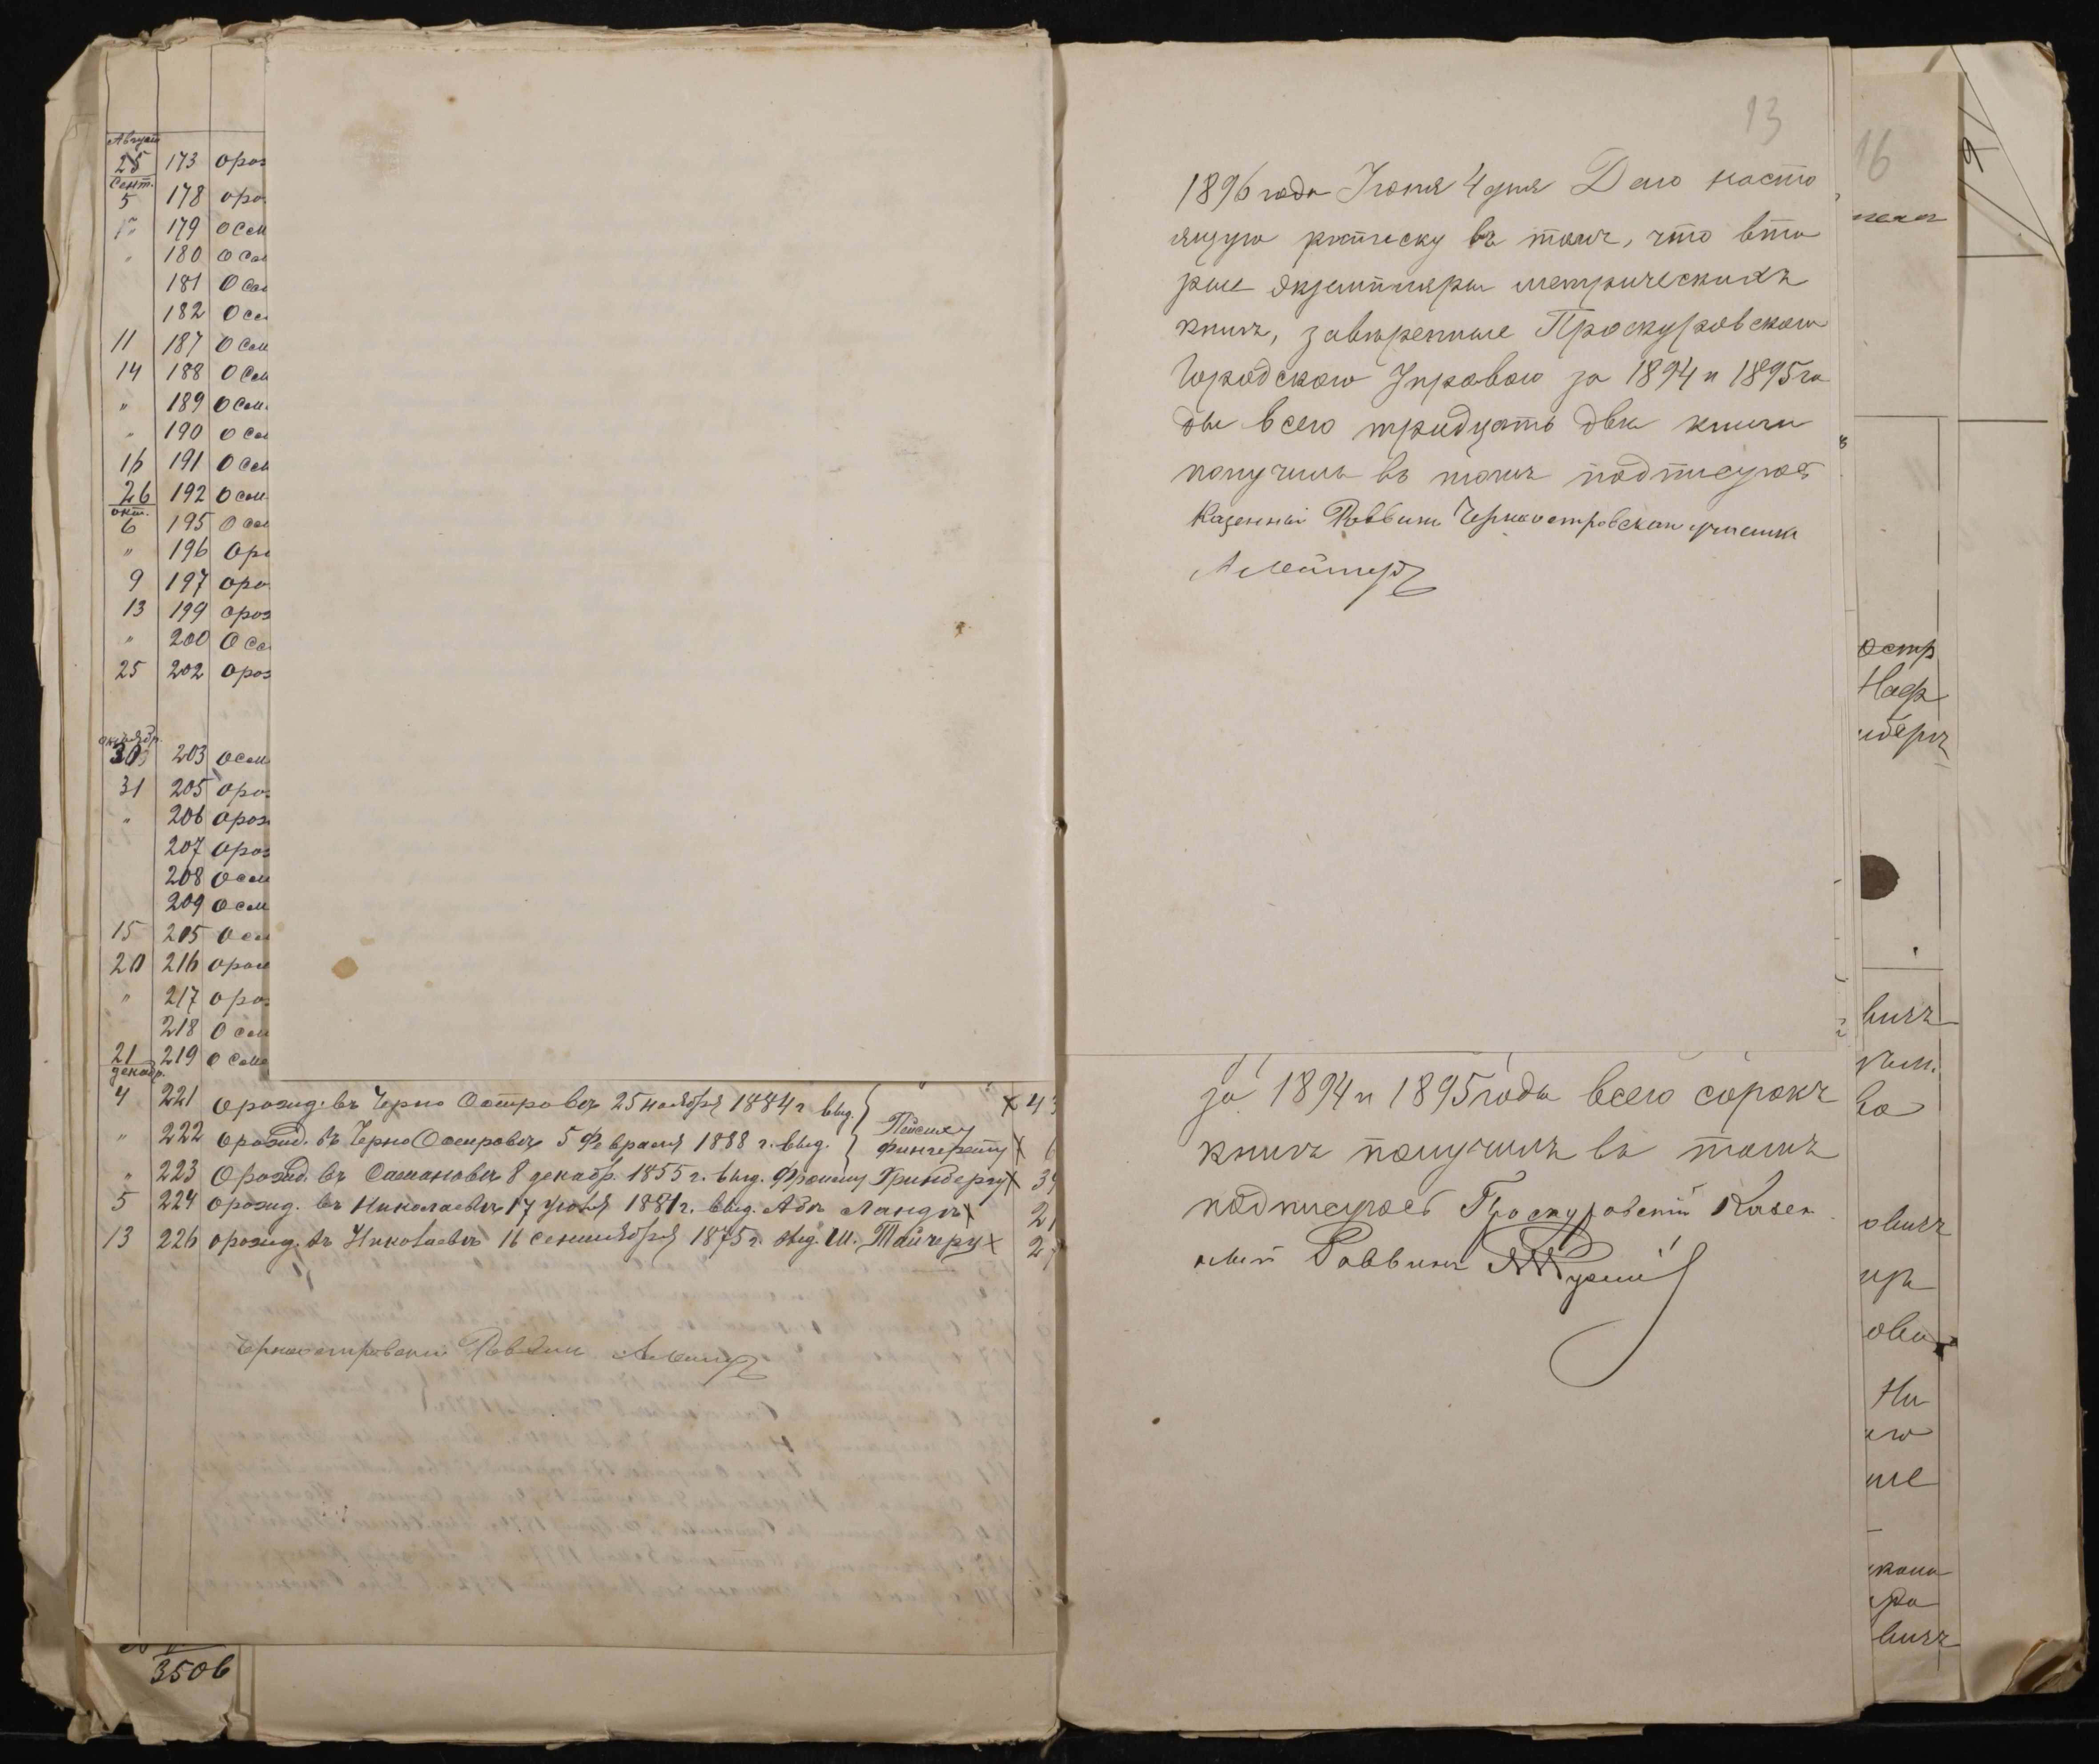 Август
25 173 О рож
Сент.
5 178 О рож
" 179 О см
" 180 О см
181 О см
182 О см
11 187 О см
14 188 О см
" 189 О см.
" 190 О см
16 191 О см
26 192 О см
окт.
6 195 О см
" 196 О ро
9 197 О ро
13 199 О рож
" 200 О см
25 202 О рож
октябр.
30 203 О см
31 205 О рож
" 206 О рож
207 О рож
208 О см
209 О см
15 215 О см
20 216 О рож
" 217 О рож
218 О см
21 219 О сме
декабр.
4 221 О рожд. въ Черно Островѣ 25 ноября 1884 г. выд.
" 222 О рожд. въ Черно Островѣ 5 Февраля 1888 г. выд. Пейсиху Фингерету
" 223 О рожд. въ Сатановѣ 8 декабр. 1855 г. выд. Фроиму Гринбергу 39
5 224 О рожд. въ Николаевѣ 17 июля 1881 г. выд. Абѣ Ландѣ 21
13 226 О рожд. въ Николаевѣ 16 сентября 1875 г. выд. Ш. Тайчеру 2
Черноостровский Раввин
3506
13
1896 года Іюня 4 дня Даю насто
ящую росписку въ томъ, что вто
рые экземпляры метрическихъ
книгъ, завѣренные Проскуровскою
Городскою Управою за 1894 и 1895 го
ды всего тридцать двѣ книги
получилъ въ томъ подписуюсь
Казенный Раввинъ Черноостровскаго участка
за 1894 и 1895 годы всего сорокъ
книгъ получилъ въ томъ
подписуюсь Проскуровскій Казен
ный Раввинъ
16
остр
Наф
вичъ
ва
овичъ
Ни
ые
вичъ